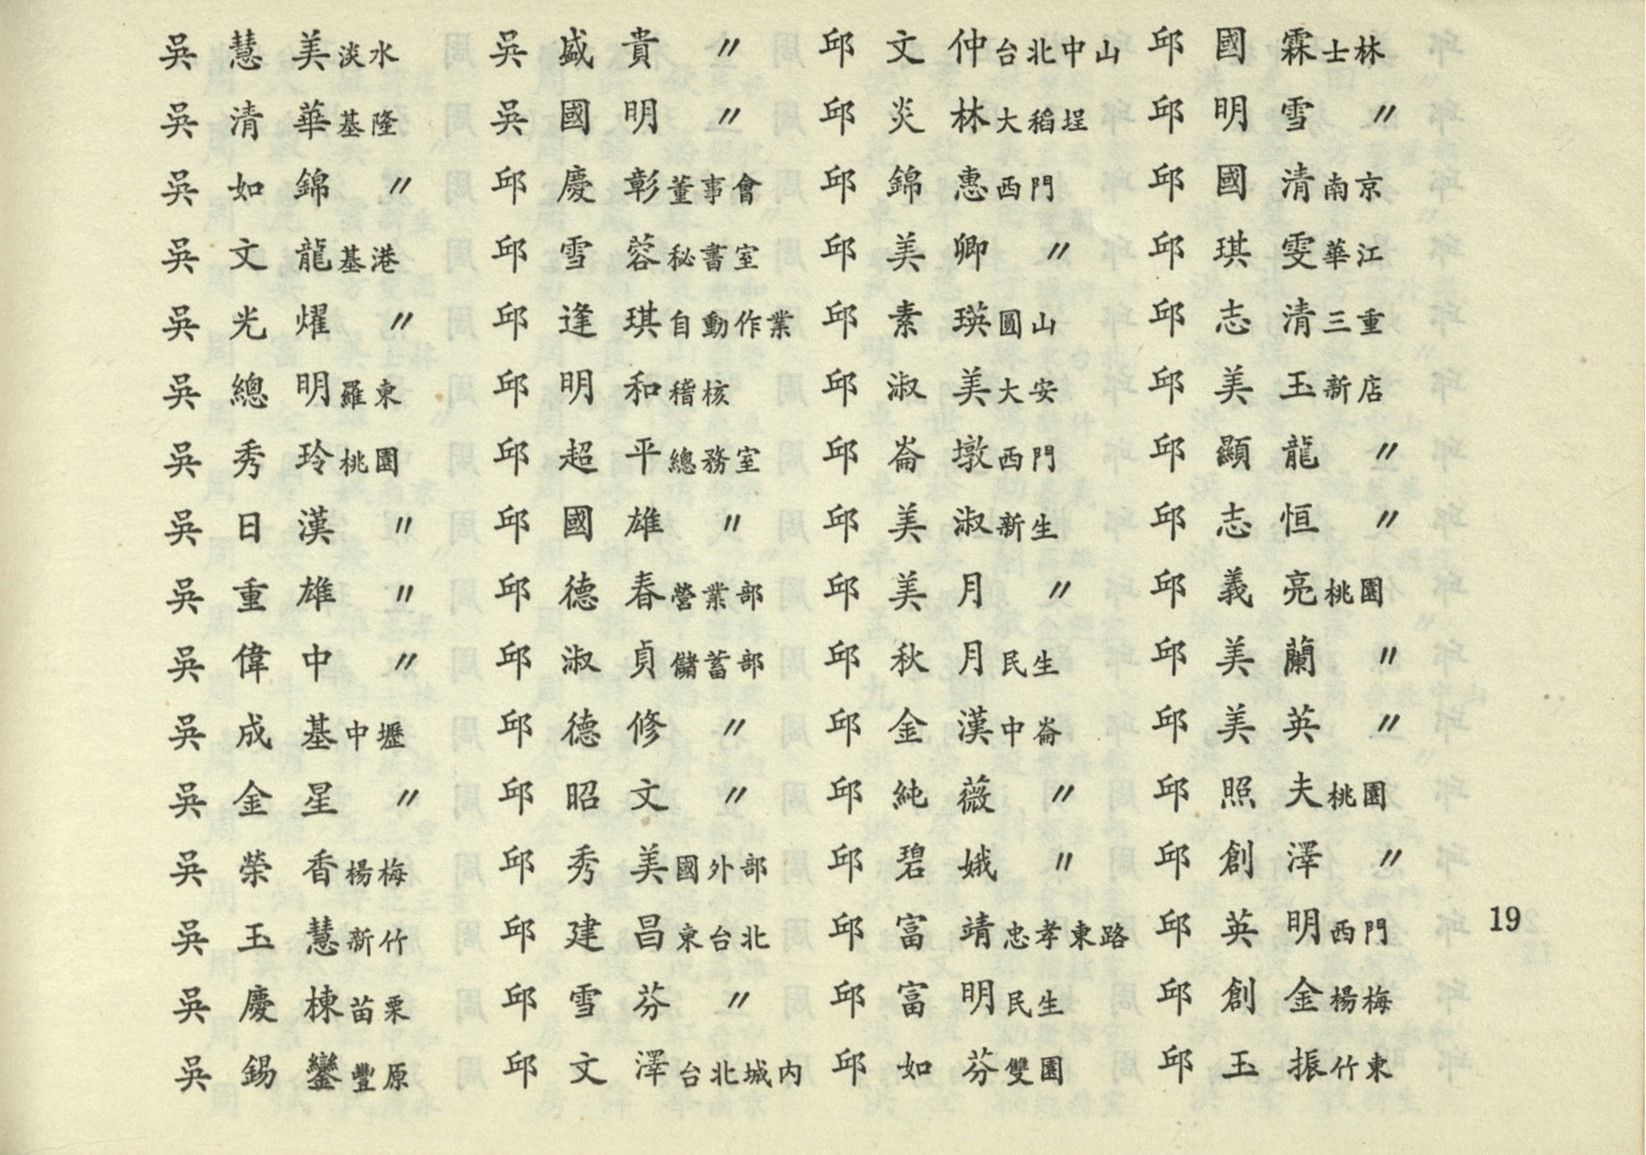 吳慧美淡水
吳清華基隆
吳如錦〃
吳文龍基港
吳光燿〃
吳總明羅東
吳秀玲桃園
吳日漢〃
吳重雄〃
吳偉中〃
吳成基中壢
吳金星〃
吳榮香楊梅
吳玉慧新竹
吳慶棟苗栗
吳錫鑾豐原
吳盛貴〃
吳國明〃
邱慶彰董事會
邱雪蓉秘書室
邱逢琪自動作業
邱明和稽核
邱超平總務室
邱國雄〃
邱德春營業部
邱淑貞儲蓄部
邱德修〃
邱昭文〃
邱秀美國外部
邱建昌東台北
邱雪芬〃
邱文澤台北城內
邱文仲台北中山
邱炎林大稻埕
邱錦惠西門
邱美卿〃
邱素瑛圓山
邱淑美大安
邱崙墩西門
邱美淑新生
邱美月〃
邱秋月民生
邱金漢中崙
邱純薇〃
邱碧娥〃
邱富靖忠孝東路
邱富明民生
邱如芬雙園
邱國霖士林
邱明雪〃
邱國清南京
邱琪雯華江
邱志清三重
邱美玉新店
邱顯龍〃
邱志恒〃
邱義亮桃園
邱美蘭〃
邱美英〃
邱照夫桃園
邱創澤〃
邱英明西門
邱創金楊梅
邱玉振竹東
19